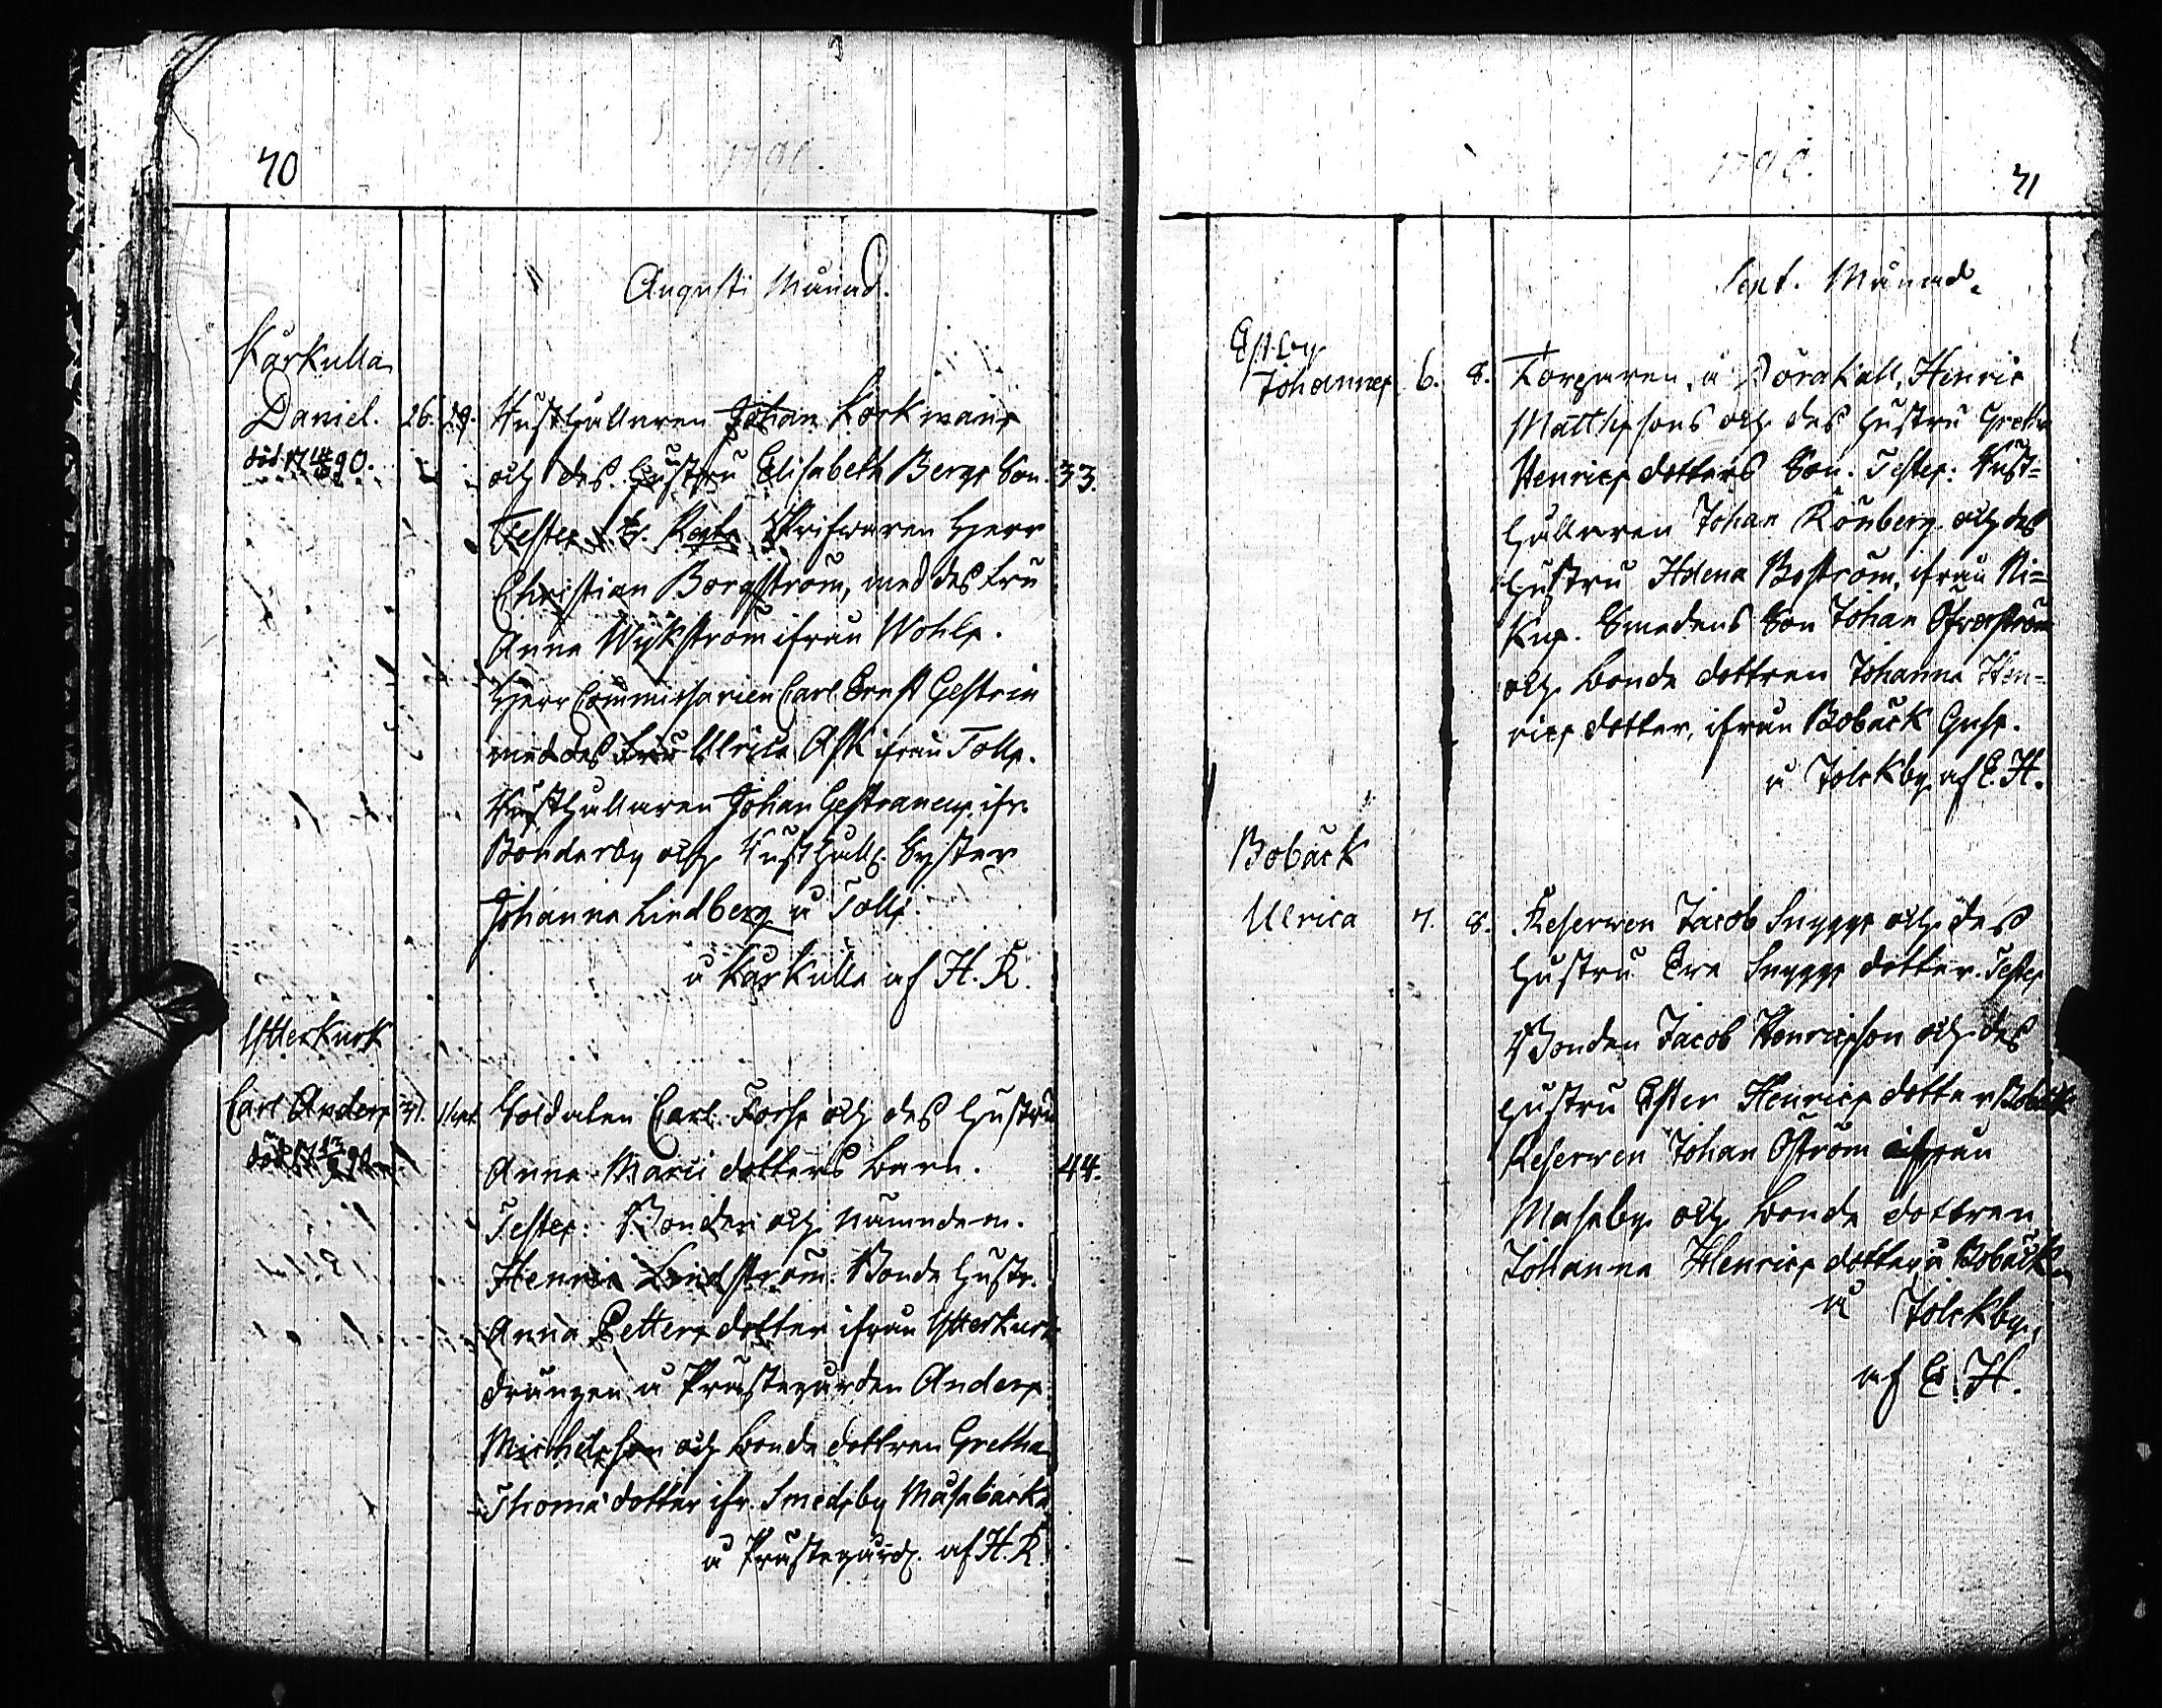 70
1790.
Augusti Månad.
Karkulla
Daniel. 26. 29. Rusthållaren Johan Korkmans
död 17 90. och des hustru Elisabeth Bergs Son. 33.
Testes: Skrifvaren Herr
Christian Borgström, med des fru
Anna Wijkström ifrån Wohls.
Herr Commissarien Carl Ernst Gestrin
med des fru Ulrica Ask ifrån Tolls.
Rusthållaren Johan Gestraneus ifr.
Bonderby och Rusthåll. Syster
Johanna Lindberg å Tolls.
å Karkulla af H. R.
Ytterkurk
Carl Anders 31. 1 Sept. Soldaten Carl Fors och des hustru
död 17 90 Anna Mariæ dotters barn. 44.
Testes: Bonden och nämndem.
Henric Lindström. Bonde hustr.
Anna Petters dotter ifrån Ytterkurk
drängen å Prästegården Anders
Michelsson och bonde dottren Gretha
Thomæ dotter ifr. Smedsby Masabacka
å Prästegård. af H. R.
1790.
71
Sept. Månad.
Estby
Johannes 6. 8. Torparen å Henric
Matthssons och des hustru Gretha
Henrics dotters Son. Testes: Rust=
hållaren Johan Rönberg och des
hustru Helena Boström, ifrån Ni=
Kus. Smedens Son Johan Öfverström
och bonde dottren Johanna Hen=
rics dotter, ifrån Boback Gusf.
å Jolckby af E. H.
Boback
Ulrica 7. 8. Reserven Jacob Snyggs och des
hustru Eva Snyggs dotter. Testes
Bonden Jacob Henricsson och des
hustru Ester Henrics dotter Boback
Reserven Johan Öström ifrån
Masaby och bonde dottren
Johanna Henrics dotter å Boback
å Jolckby,
af E. H.